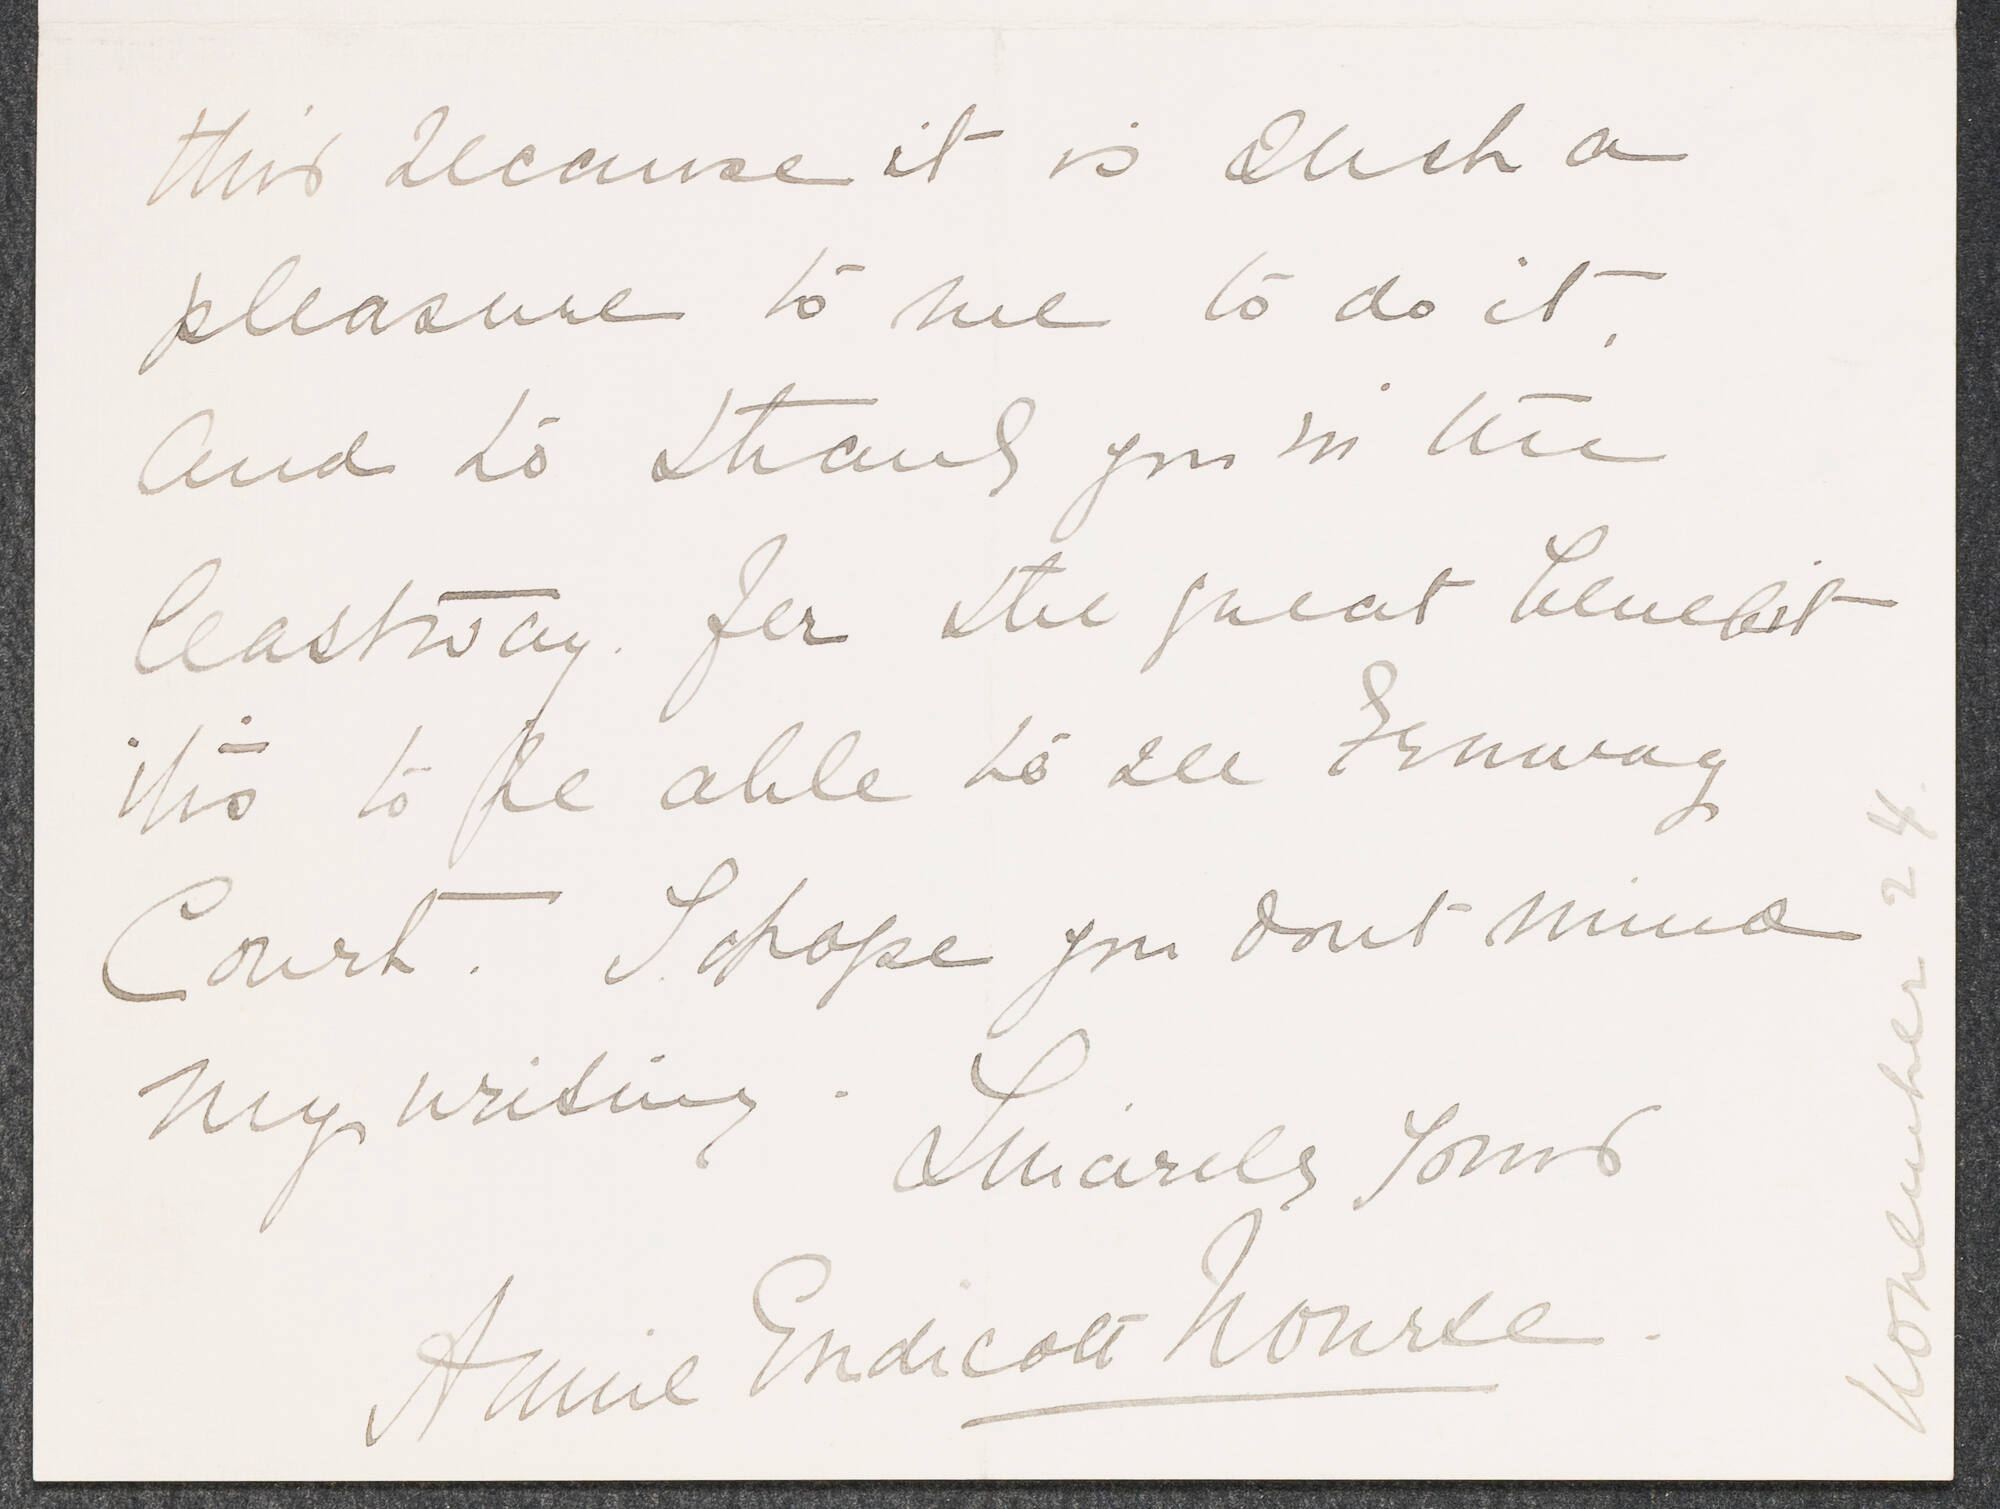 this because it is such a
pleasure to me to do it,
and to thank you in the
least way. for the great benefit
it is to be able to see Fenway
Court. I hope you dont mind
my writing.
Sincerely Yours
Annie Endicott Nourse.
November 24.